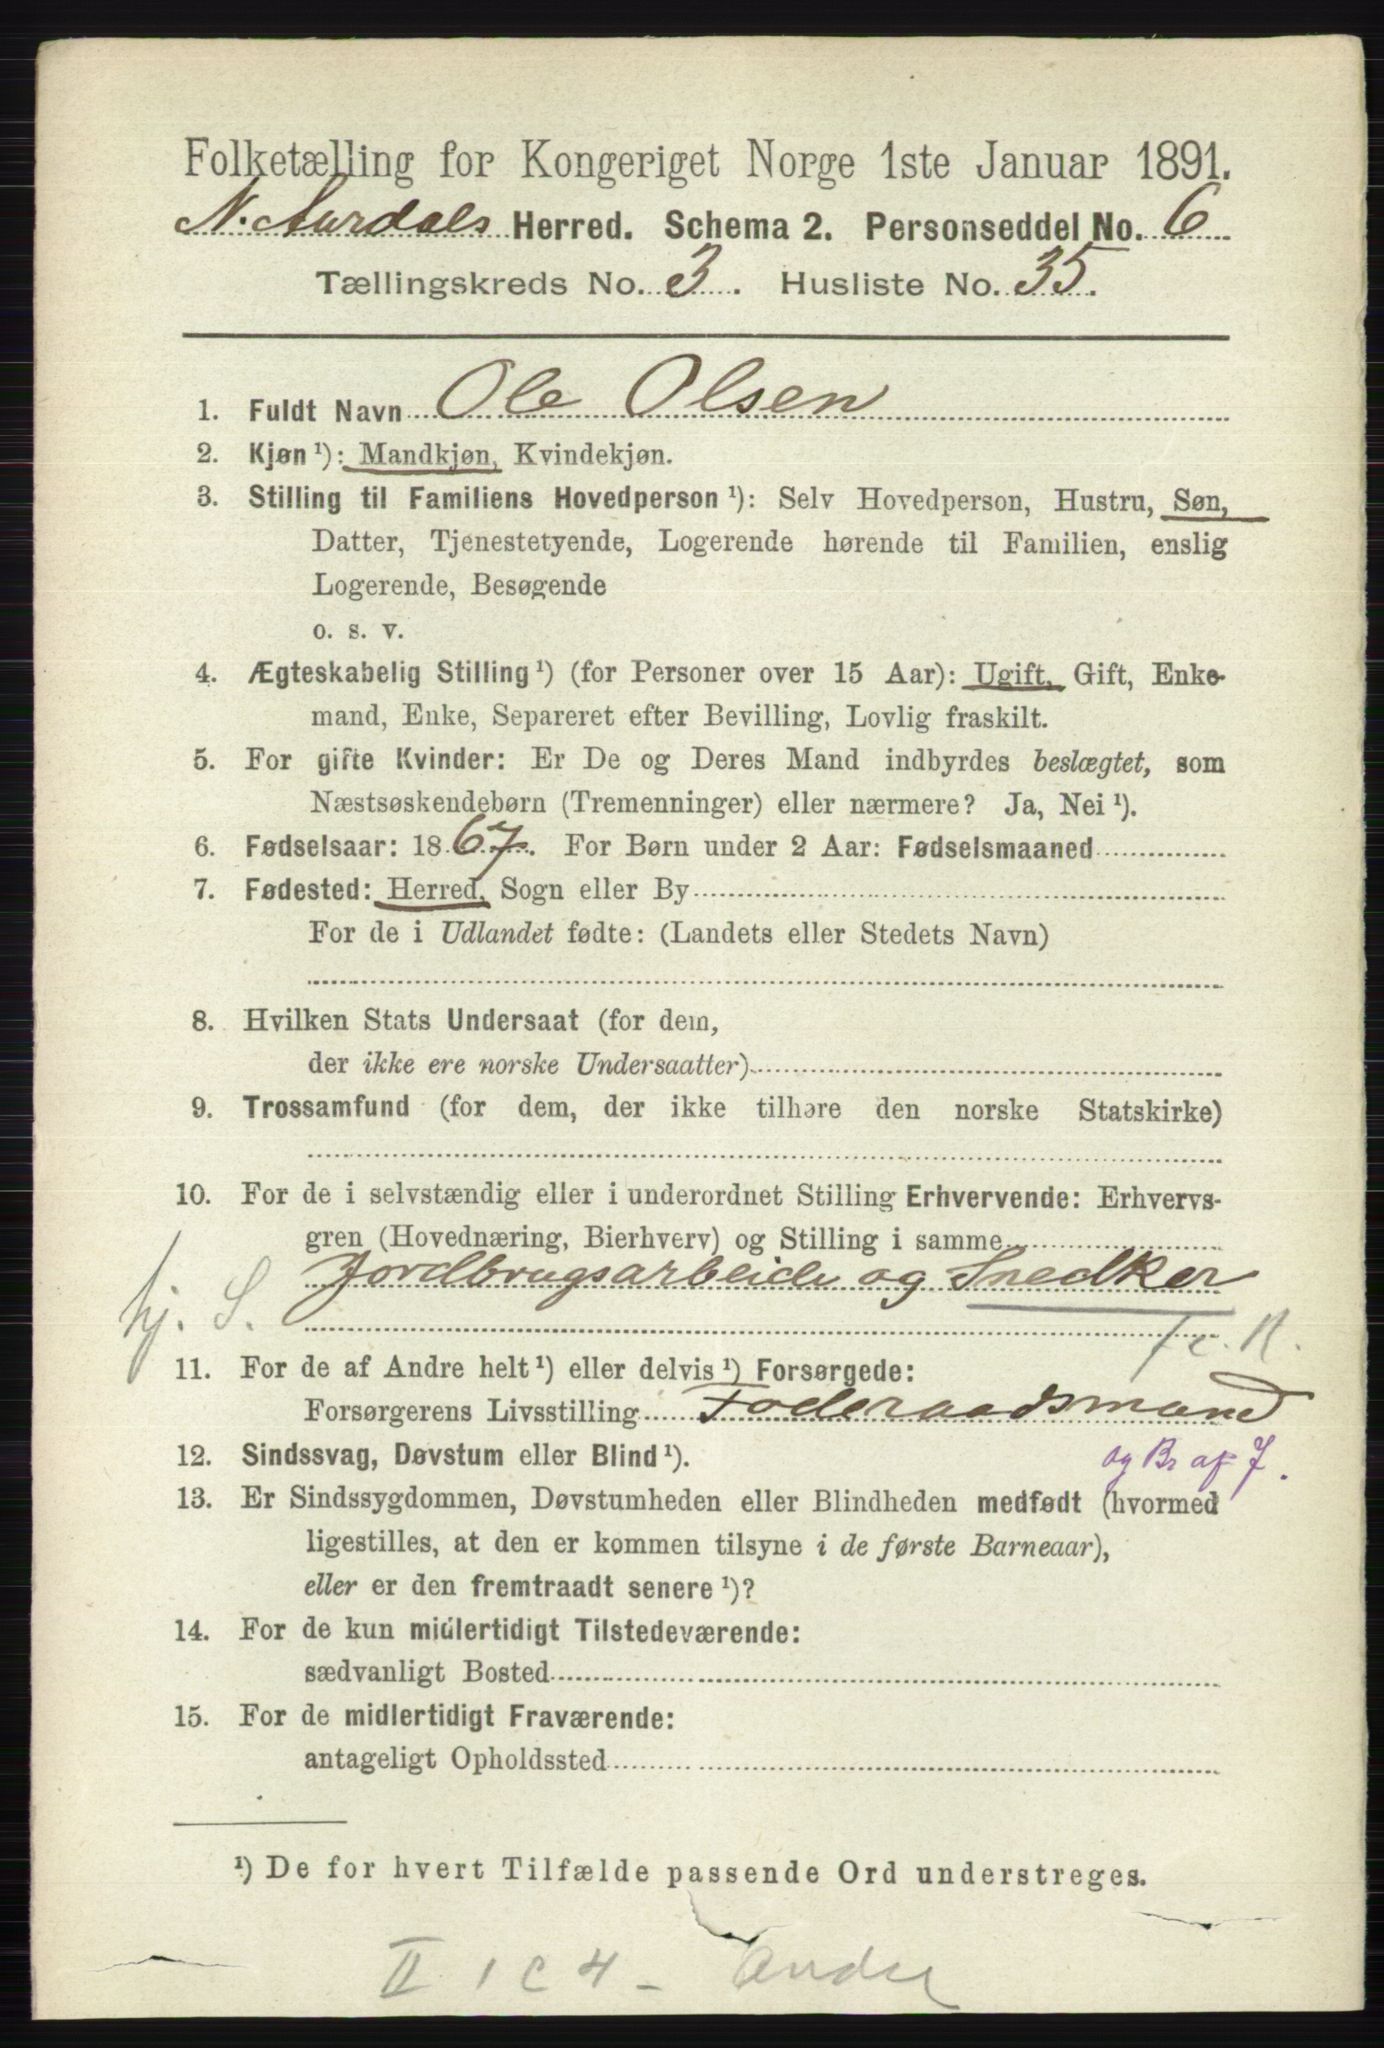 Folketælling for Kongeriget Norge 1ste Januar 1891.
N. Aurdals Herred. Schema 2. Personseddel No. 6
Tællingskreds No. 3. Husliste No. 35.
1. Fuldt Navn Ole Olsen
2. Kjøn ¹): Mandkjøn, Kvindekjøn.
3. Stilling til Familiens Hovedperson ¹): Selv Hovedperson, Hustru, Søn,
Datter, Tjenestetyende, Logerende hørende til Familien, enslig
Logerende, Besøgende
o. s. v.
4. Ægteskabelig Stilling ¹) (for Personer over 15 Aar): Ugift, Gift, Enke-
mand, Enke, Separeret efter Bevilling, Lovlig fraskilt.
5. For gifte Kvinder: Er De og Deres Mand indbyrdes beslægtet, som
Næstsøskendebørn (Tremenninger) eller nærmere? Ja, Nei ¹).
6. Fødselsaar: 1867. For Børn under 2 Aar: Fødselsmaaned
7. Fødested: Herred, Sogn eller By
For de i Udlandet fødte: (Landets eller Stedets Navn)
8. Hvilken Stats Undersaat (for dem,
der ikke ere norske Undersaatter)
9. Trossamfund (for dem, der ikke tilhøre den norske Statskirke)
10. For de i selvstændig eller i underordnet Stilling Erhvervende: Erhvervs-
gren (Hovednæring, Bierhverv) og Stilling i samme
Jordbrugsarbeide og Snedker
hj. S.
11. For de af Andre helt ¹) eller delvis ¹) Forsørgede:
Forsørgerens Livsstilling Foderaadsmand
12. Sindssvag, Døvstum eller Blind ¹).
og Br af J.
13. Er Sindssygdommen, Døvstumheden eller Blindheden medfødt (hvormed
ligestilles, at den er kommen tilsyne i de første Barneaar),
eller er den fremtraadt senere ¹)?
14. For de kun midlertidigt Tilstedeværende:
sædvanligt Bosted
15. For de midlertidigt Fraværende:
antageligt Opholdssted
¹) De for hvert Tilfælde passende Ord understreges.
II 1 C 4 - Andre